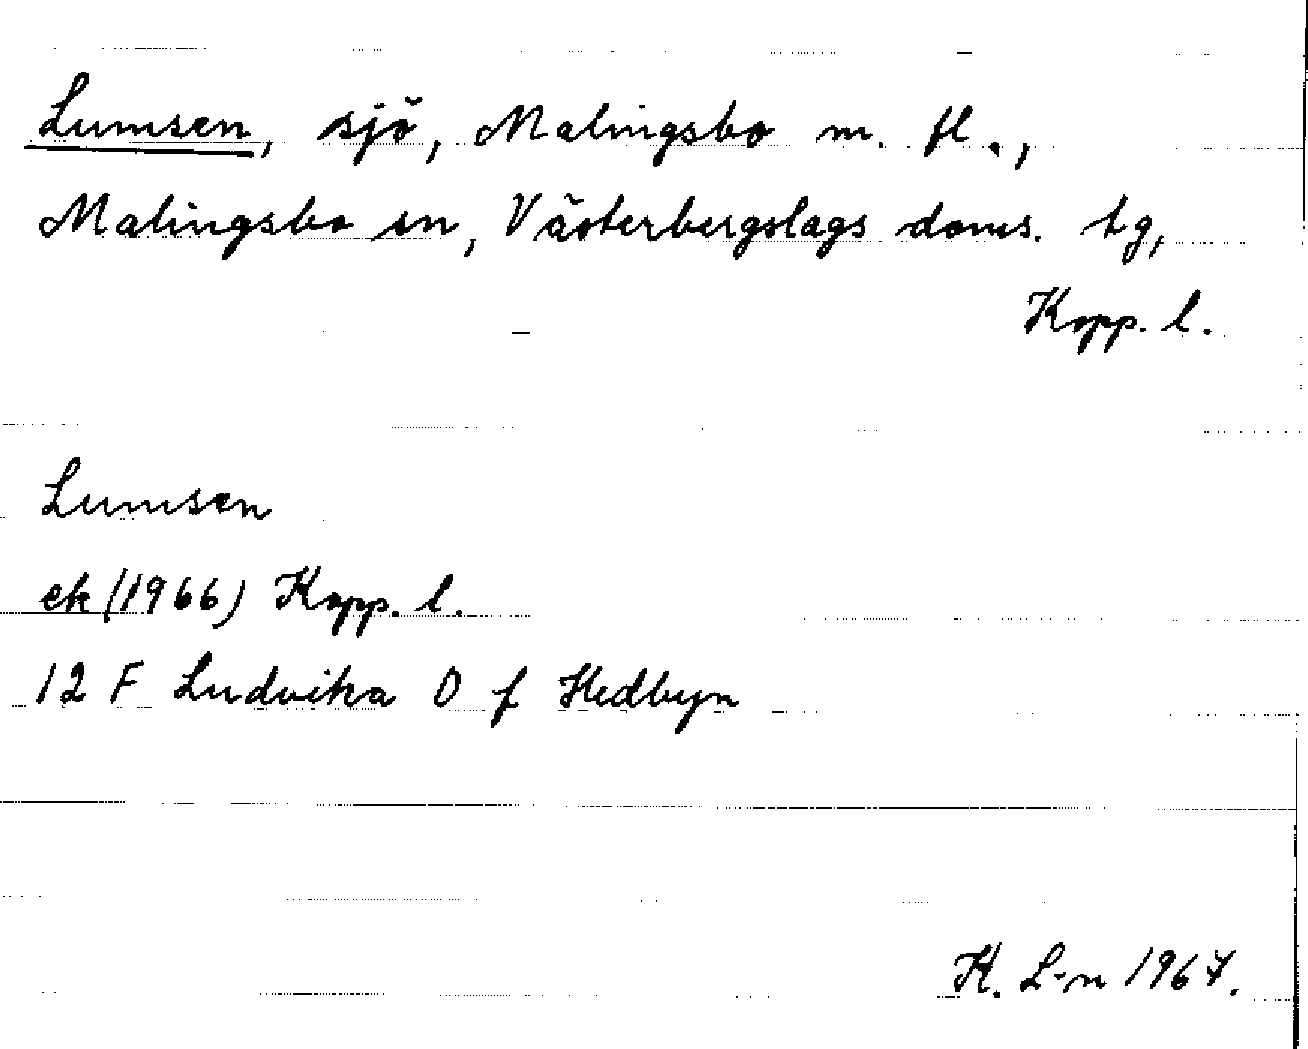 Lumsen, sjö, Malingsbo m. fl.,
Malingsbo sn, Västerbergslags doms. tg,
Kopp. l.
Lumsen
ek (1966) Kopp. l.
12 F Ludvika 0 f Hedbyn
K. L-n 1967.